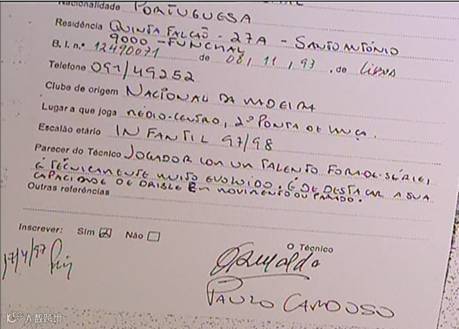 Nacionalidade PORTUGUESA
Residência QUINTA FALCÃO - 27A - SANTO ANTÓNIO
9000 - FUNCHAL
B. I. n.º 12490071 de 08, 11, 93, de Lisboa
Telefone 091/49252
Clube de origem NACIONAL DA MADEIRA
Lugar a que joga MÉDIO-CENTRO, 2º PONTA DE LANÇA.
Escalão etário INFANTIL 97/98
Parecer do Técnico JOGADOR COM UM TALENTO FORA-DE-SÉRIE,
E TECNICAMENTE MUITO EVOLUIDO. É DE DESTACAR A SUA
CAPACIDADE DE DRIBLE EM MOVIMENTO OU PARADO.
Outras referências
Inscrever: Sim ☒ Não ☐
17/4/97
O Técnico
Osvaldo
PAULO CARDOSO